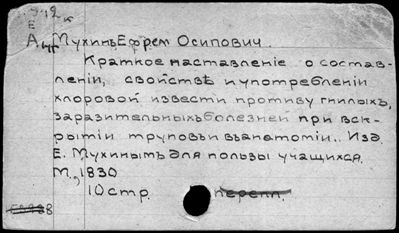 Е
Мухинъ Ефрем Осипович.
Краткое наставление о состав-
лении, свойстве и употреблении
хлоровой извести противу гнилыхъ,
заразительныхъ болезней при вск-
рытии труповъ и въ анатомии. Изд.
Е. Мухинымъ для пользы учащихся.
М., 1830
10 стр. перепл.